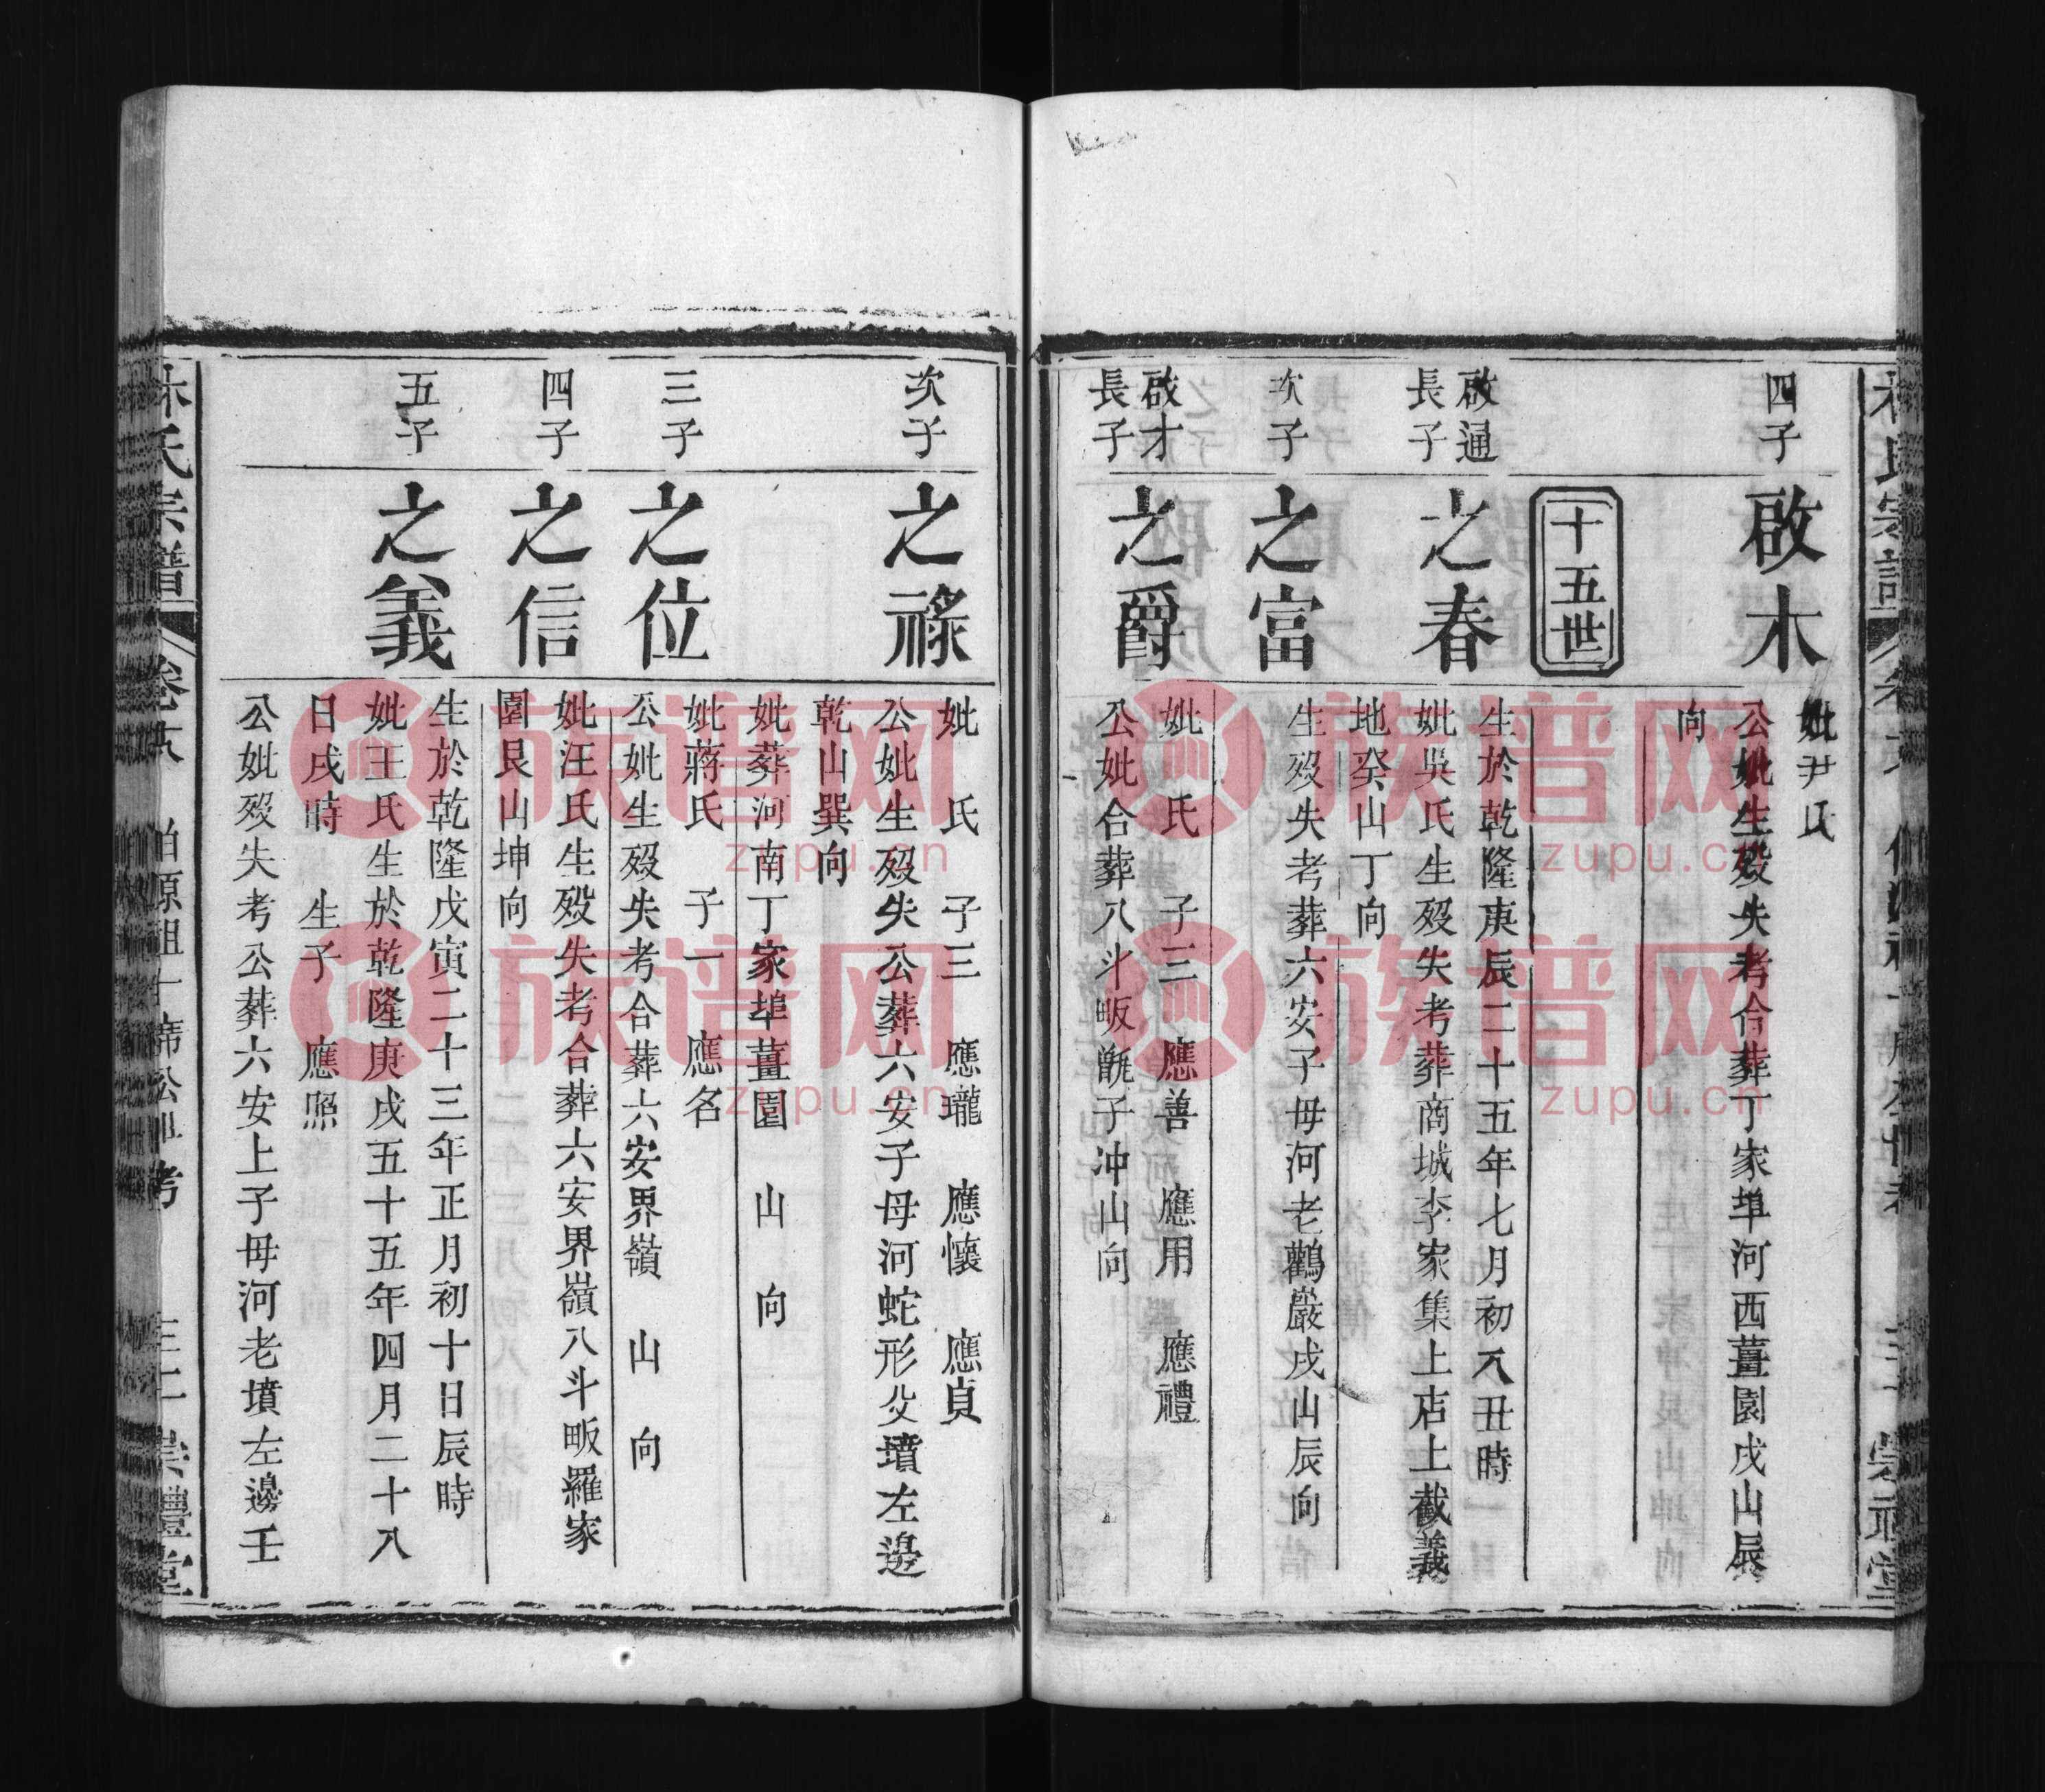 四子
啟木
妣尹氏
公妣生歿失考合葬丁家埠河西薑園戌山辰
向
十五世
啟通
長子
之春
生於乾隆庚辰二十五年七月初八丑時
妣吳氏生歿失考葬商城李家集上店上截義
地癸山丁向
次子
之富
生歿失考葬六安子毋河老鸛巖戌山辰向
啟才
長子
之爵
妣　氏　子三　應善　應用　應禮
公妣合葬八斗畈甑子冲山向
次子
之祿
妣　氏　子三　應瓏　應懷　應貞
公妣生歿失公葬六安子母河蛇形父墳左邊
乾山巽向
妣葬河南丁家埠薑園　山　向
三子
之位
妣蔣氏　子一　應名
公妣生歿失考合葬六安界嶺　山　向
四子
之信
妣汪氏生歿失考合葬六安界嶺八斗畈羅家
園艮山坤向
五子
之義
生於乾隆戊寅二十三年正月初十日辰時
妣王氏生於乾隆庚戌五十五年四月二十八
日戌時　生子　應照
公妣歿失考公葬六安上子毋河老墳左邊壬
氏宗譜
族谱网
zupu.cn
族谱网
zupu.cn
族谱网
zupu.cn
族谱网
zupu.cn